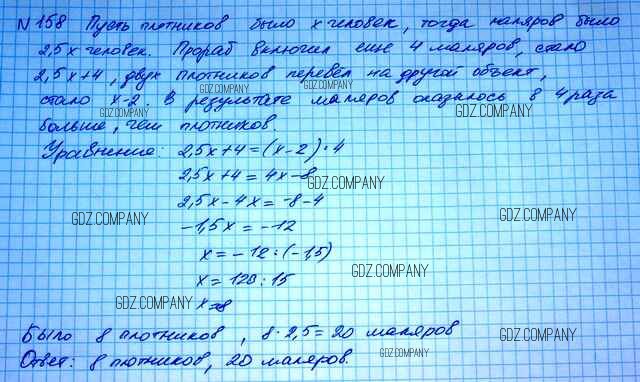 N 158 Пусть плотников было x человек, тогда маляров было
2,5x человек. Прораб включил еще 4 маляров, стало
2,5x+4, двух плотников перевёл на другой объект,
стало x-2. В результате маляров оказалось в 4 раза
больше, чем плотников.
Уравнение: 2,5x+4=(x-2)·4
2,5x+4=4x-8
2,5x-4x=-8-4
-1,5x=-12
x=-12:(-1,5)
x=120:15
x=8
Было 8 плотников, 8·2,5=20 маляров
Ответ: 8 плотников, 20 маляров.
GDZ.COMPANY
GDZ.COMPANY
GDZ.COMPANY
GDZ.COMPANY
GDZ.COMPANY
GDZ.COMPANY
GDZ.COMPANY
GDZ.COMPANY
GDZ.COMPANY
GDZ.COMPANY
GDZ.COMPANY